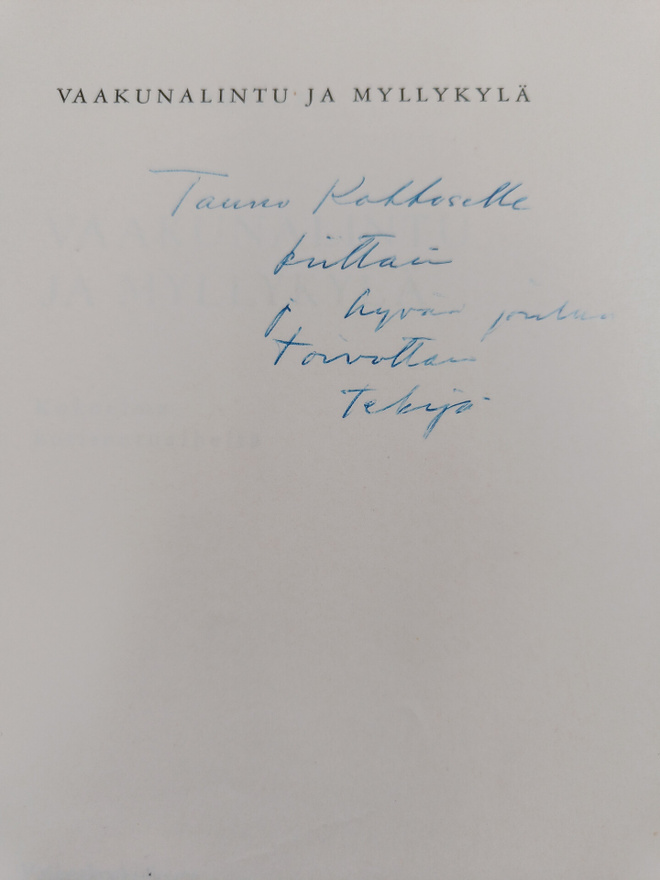 VAAKUNALINTU JA MYLLYKYLÄ
Tauno Kokkoselle
kiittäin
j hyvää joulua
toivottaen
tekijä